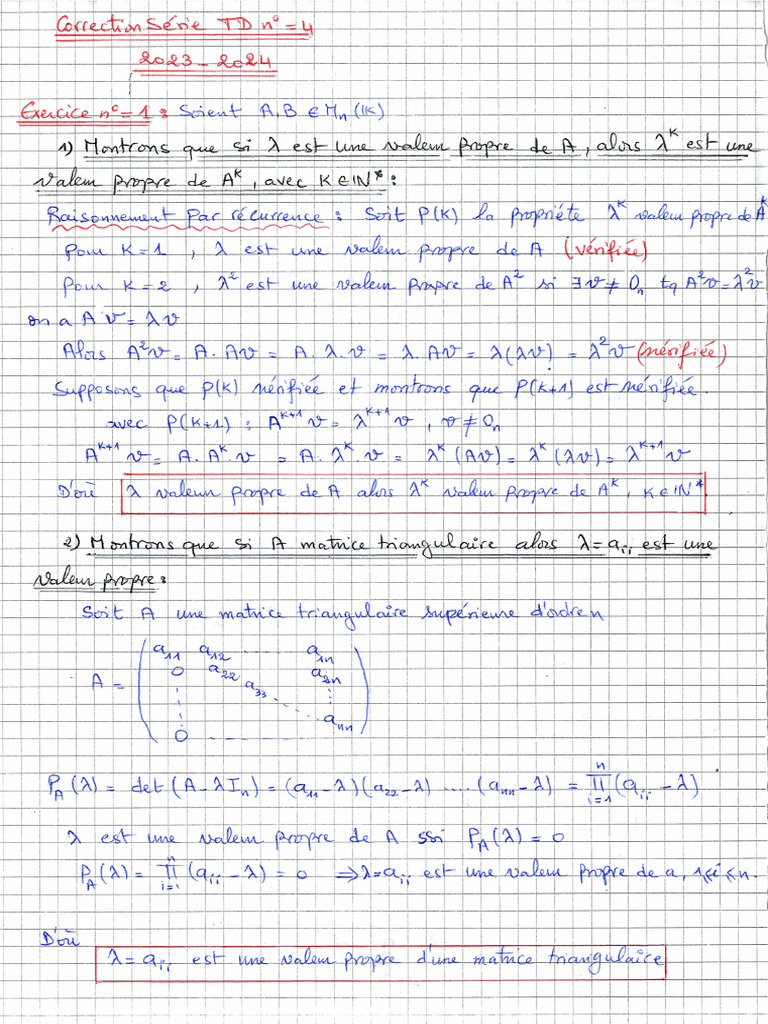 Correction Série TD n° = 4
2023 - 2024
Exercice n° = 1 : Soient A, B ∈ Mn (IK)
1) Montrons que si λ est une valeur propre de A, alors λ^K est une
valeur propre de A^K, avec K ∈ IN* :
Raisonnement Par récurrence : Soit P(K) la propriéte λ^K valeur propre de A^K
Pour K = 1 , λ est une valeur propre de A (vérifiée)
Pour K = 2 , λ² est une valeur propre de A² si ∃ v ≠ 0n tq A²v = λ²v
on a A v = λv
Alors A²v = A. Av = A. λ. v = λ. Av = λ(λv) = λ²v (vérifiée)
Supposons que P(K) vérifiée et montrons que P(K+1) est vérifiée.
avec P(K+1) : A^{K+1} v = λ^{K+1} v , v ≠ 0n
A^{K+1} v = A. A^K. v = A. λ^K. v = λ^K (Av) = λ^K (λv) = λ^{K+1} v
D'où λ valeur propre de A alors λ^K valeur propre de A^K, K ∈ IN*
2) Montrons que si A matrice triangulaire alors λ = a_{ii} est une
valeur propre :
Soit A une matrice triangulaire supérieure d'ordre n
a_{11} a_{12} ..... a_{1n}
0 a_{22} a_{2n}
A = a_{33} .....
a_{nn}
0 .....
P_A(λ) = det (A - λI_n) = (a_{11} - λ)(a_{22} - λ) ..... (a_{nn} - λ) = ∏_{i=1}^{n} (a_{ii} - λ)
λ est une valeur propre de A ssi P_A(λ) = 0
P_A(λ) = ∏_{i=1}^{n} (a_{ii} - λ) = 0 ⇒ λ = a_{ii} est une valeur propre de a, 1 ≤ i ≤ n.
D'où
λ = a_{ii} est une valeur propre d'une matrice triangulaire